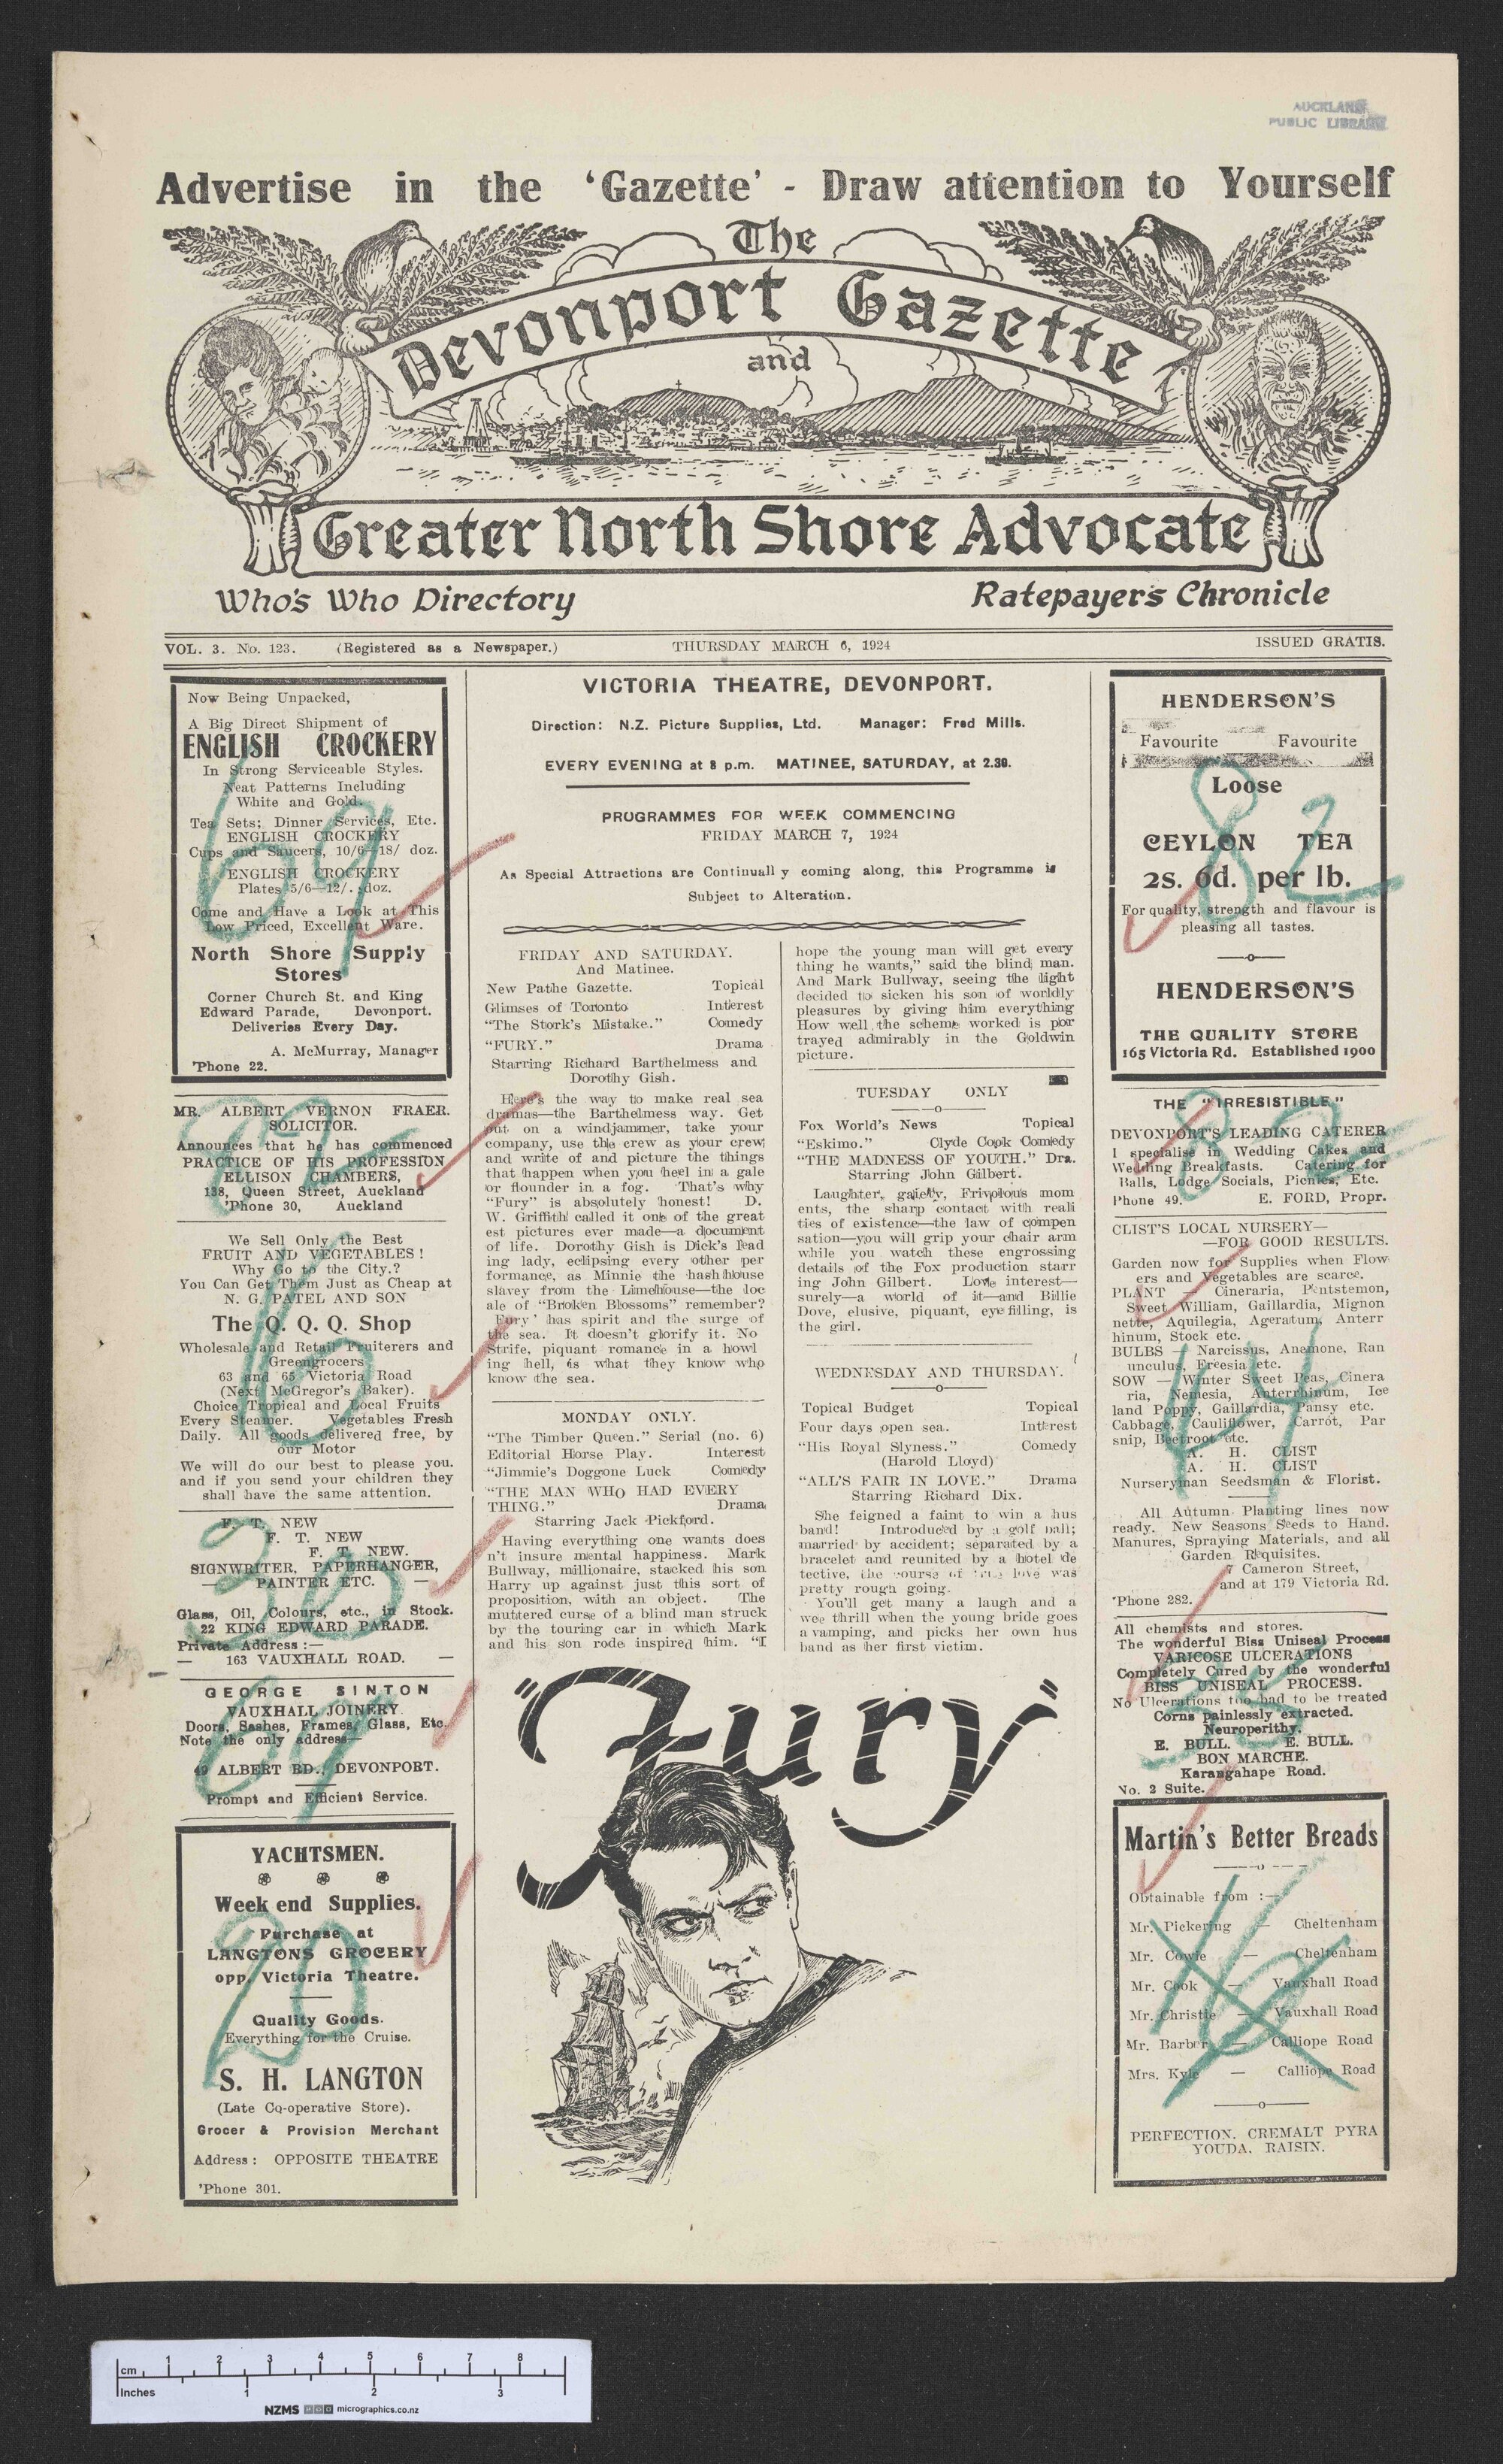 AUCKLAND
PUBLIC LIBRARY
Advertise in the 'Gazette' - Draw attention to Yourself
The
Devonport Gazette
and
Greater North Shore Advocate
Who's Who Directory
Ratepayer's Chronicle
VOL. 3. No. 123. (Registered as a Newspaper.) THURSDAY MARCH 6, 1924 ISSUED GRATIS.
Now Being Unpacked,
A Big Direct Shipment of
ENGLISH CROCKERY
In Strong Serviceable Styles.
Neat Patterns Including
White and Gold.
Tea Sets; Dinner Services, Etc.
ENGLISH CROCKERY
Cups and Saucers, 10/6—18/ doz.
ENGLISH CROCKERY
Plates 5/6—12/. doz.
Come and Have a Look at This
Low Priced, Excellent Ware.
North Shore Supply
Stores
Corner Church St. and King
Edward Parade, Devonport.
Deliveries Every Day.
A. McMurray, Manager
'Phone 22.
69
MR. ALBERT VERNON FRAER.
SOLICITOR.
Announces that he has commenced
PRACTICE OF HIS PROFESSION
ELLISON CHAMBERS,
138, Queen Street, Auckland
'Phone 30, Auckland
82
We Sell Only the Best
FRUIT AND VEGETABLES !
Why Go to the City.?
You Can Get Them Just as Cheap at
N. G. PATEL AND SON
The Q. Q. Q. Shop
Wholesale and Retail Fruiterers and
Greengrocers
63 and 65 Victoria Road
(Next McGregor's Baker).
Choice Tropical and Local Fruits
Every Steamer. Vegetables Fresh
Daily. All goods delivered free, by
our Motor
We will do our best to please you.
and if you send your children they
shall have the same attention.
16
F. T. NEW
F. T. NEW
F. T. NEW.
SIGNWRITER, PAPERHANGER,
— PAINTER ETC. —
Glass, Oil, Colours, etc., in Stock.
22 KING EDWARD PARADE.
Private Address :—
— 163 VAUXHALL ROAD. —
GEORGE SINTON
VAUXHALL JOINERY
Doors, Sashes, Frames, Glass, Etc.
Note the only address—
49 ALBERT RD., DEVONPORT.
Prompt and Efficient Service.
69
YACHTSMEN.
Week end Supplies.
Purchase at
LANGTONS GROCERY
opp. Victoria Theatre.
Quality Goods.
Everything for the Cruise.
S. H. LANGTON
(Late Co-operative Store).
Grocer & Provision Merchant
Address : OPPOSITE THEATRE
'Phone 301.
20
VICTORIA THEATRE, DEVONPORT.
Direction: N.Z. Picture Supplies, Ltd. Manager: Fred Mills.
EVERY EVENING at 8 p.m. MATINEE, SATURDAY, at 2.30.
PROGRAMMES FOR WEEK COMMENCING
FRIDAY MARCH 7, 1924
As Special Attractions are Continuall y coming along, this Programme is
Subject to Alteration.
FRIDAY AND SATURDAY.
And Matinee.
New Pathe Gazette. Topical
Glimses of Toronto Interest
"The Stork's Mistake." Comedy
"FURY." Drama
Starring Richard Barthelmess and
Dorothy Gish.
Here's the way to make real sea
dramas—the Barthelmess way. Get
out on a windjammer, take your
company, use the crew as your crew;
and write of and picture the things
that happen when you heel in a gale
or flounder in a fog. That's why
"Fury" is absolutely honest! D.
W. Griffith called it one of the great
est pictures ever made—a document
of life. Dorothy Gish is Dick's lead
ing lady, eclipsing every other per
formance, as Minnie the hash house
slavey from the Limehouse—the loc
ale of "Broken Blossoms" remember?
Fury' has spirit and the surge of
the sea. It doesn't glorify it. No
Strife, piquant romance in a howl
ing hell, is what they know who
know the sea.
MONDAY ONLY.
"The Timber Queen." Serial (no. 6)
Editorial Horse Play. Interest
"Jimmie's Doggone Luck Comedy
"THE MAN WHO HAD EVERY
THING." Drama
Starring Jack Pickford.
Having everything one wants does
n't insure mental happiness. Mark
Bullway, millionaire, stacked his son
Harry up against just this sort of
proposition, with an object. The
muttered curse of a blind man struck
by the touring car in which Mark
and his son rode inspired him. "I
hope the young man will get every
thing he wants," said the blind man.
And Mark Bullway, seeing the light
decided to sicken his son of worldly
pleasures by giving him everything
How well the scheme worked is por
trayed admirably in the Goldwin
picture.
TUESDAY ONLY
Fox World's News Topical
"Eskimo." Clyde Cook Comedy
"THE MADNESS OF YOUTH." Dra.
Starring John Gilbert.
Laughter, gaiety, Frivolous mom
ents, the sharp contact with reali
ties of existence—the law of compen
sation—you will grip your chair arm
while you watch these engrossing
details of the Fox production starr
ing John Gilbert. Love interest—
surely—a world of it—and Billie
Dove, elusive, piquant, eye filling, is
the girl.
WEDNESDAY AND THURSDAY.
Topical Budget Topical
Four days open sea. Interest
"His Royal Slyness." Comedy
(Harold Lloyd)
"ALL'S FAIR IN LOVE." Drama
Starring Richard Dix.
She feigned a faint to win a hus
band! Introduced by a golf ball;
married by accident; separated by a
bracelet and reunited by a hotel de
tective, the course of true love was
pretty rough going.
You'll get many a laugh and a
wee thrill when the young bride goes
a vamping, and picks her own hus
band as her first victim.
"Fury"
HENDERSON'S
Favourite Favourite
Loose
CEYLON TEA
2s. 6d. per lb.
For quality, strength and flavour is
pleasing all tastes.
HENDERSON'S
THE QUALITY STORE
165 Victoria Rd. Established 1900
82
THE "IRRESISTIBLE"
DEVONPORT'S LEADING CATERER
I specialise in Wedding Cakes and
Wedding Breakfasts. Catering for
Balls, Lodge Socials, Picnics, Etc.
Phone 49. E. FORD, Propr.
CLIST'S LOCAL NURSERY—
—FOR GOOD RESULTS.
Garden now for Supplies when Flow
ers and Vegetables are scarce.
PLANT — Cineraria, Pentstemon,
Sweet William, Gaillardia, Mignon
nette, Aquilegia, Ageratum, Anterr
hinum, Stock etc.
BULBS — Narcissus, Anemone, Ran
unculus, Freesia etc.
SOW — Winter Sweet Peas, Cinera
ria, Nemesia, Anterrhinum, Ice
land Poppy, Gaillardia, Pansy etc.
Cabbage, Cauliflower, Carrot, Par
snip, Beetroot etc.
A. H. CLIST
A. H. CLIST
Nurseryman Seedsman & Florist.
All Autumn Planting lines now
ready. New Seasons Seeds to Hand.
Manures, Spraying Materials, and all
Garden Requisites.
7 Cameron Street,
and at 179 Victoria Rd.
'Phone 282.
All chemists and stores.
The wonderful Biss Uniseal Process
VARICOSE ULCERATIONS
Completely Cured by the wonderful
BISS UNISEAL PROCESS.
No Ulcerations too bad to be treated
Corns painlessly extracted.
Neuroperithy.
E. BULL. E. BULL.
BON MARCHE.
Karangahape Road.
No. 2 Suite.
Martin's Better Breads
Obtainable from :—
Mr. Pickering — Cheltenham
Mr. Cowie — Cheltenham
Mr. Cook — Vauxhall Road
Mr. Christie — Vauxhall Road
Mr. Barber — Calliope Road
Mrs. Kyle — Calliope Road
PERFECTION. CREMALT PYRA
YOUDA. RAISIN.
cm 1 2 3 4 5 6 7 8
Inches 1 2 3
NZMS micrographics.co.nz